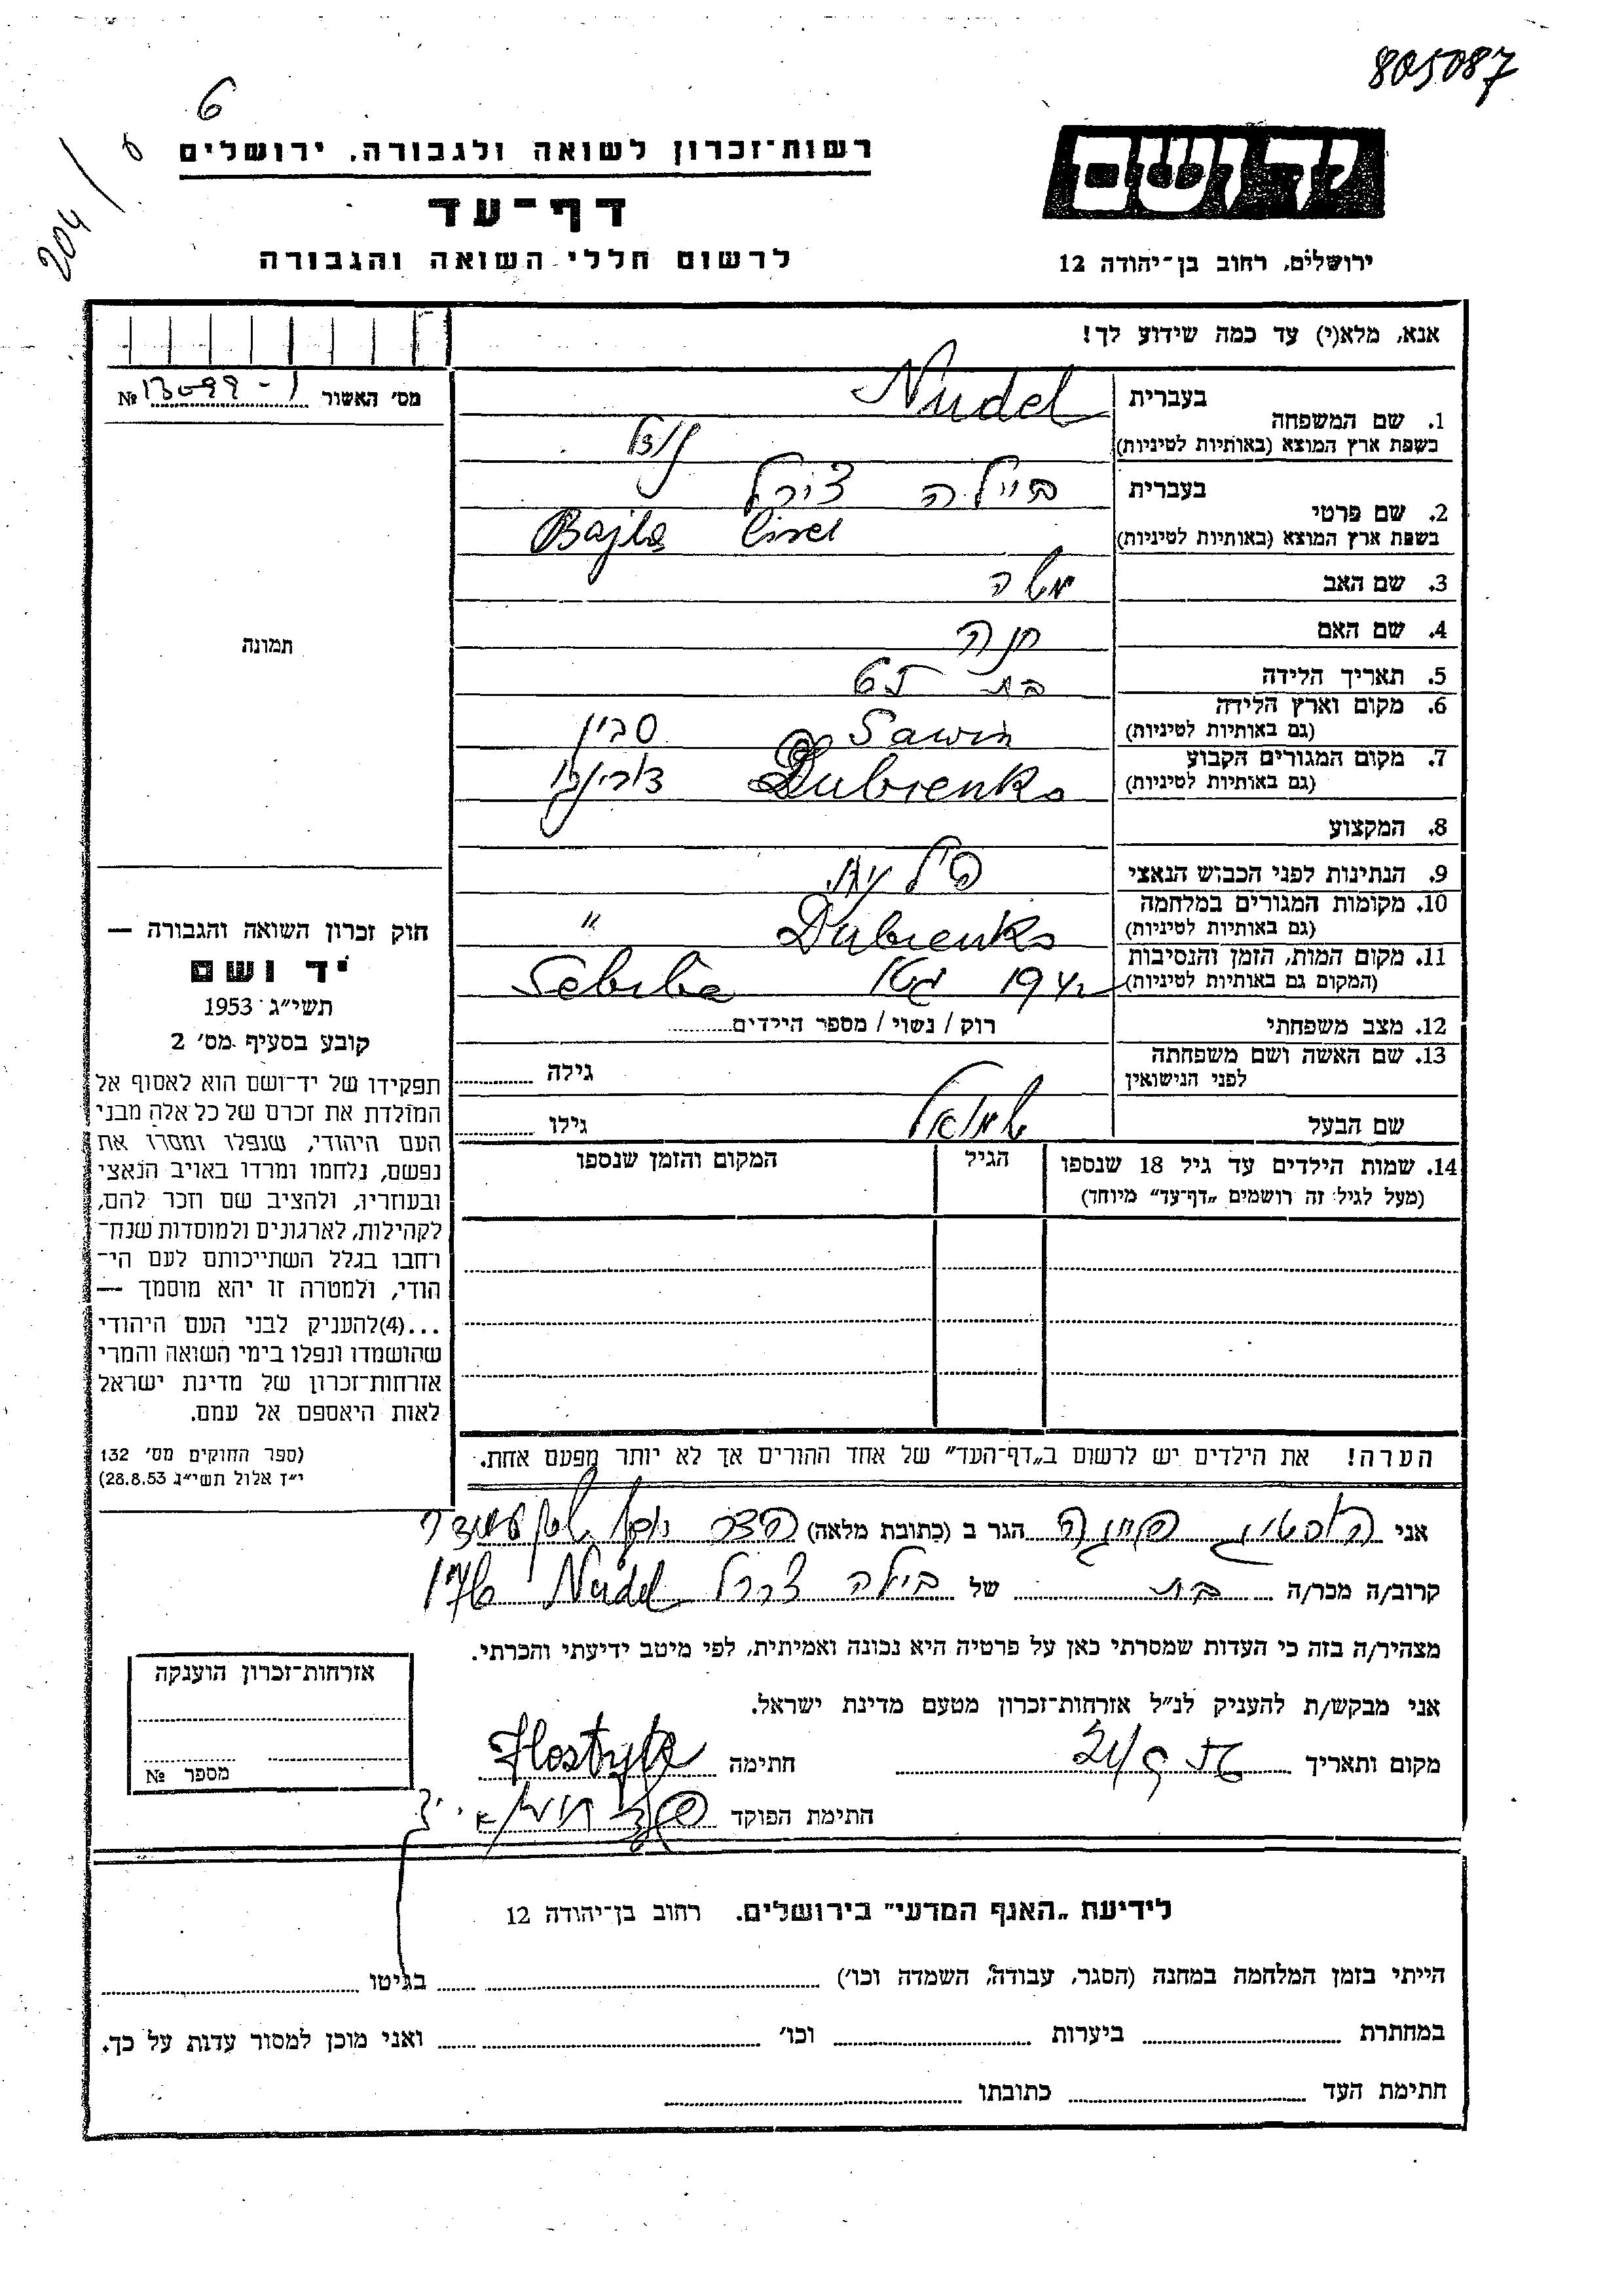 805087
6
204/
רשות־זכרון לשואה ולגבורה, ירושלים
דף־עד
לרשום חללי השואה והגבורה
ידושם
ירושלים, רחוב בן־יהודה 12
אנא, מלא(י) עד כמה שידוע לך!
מס׳ האשור № 13099-1
1. שם המשפחה בעברית Nudel
בשפת ארץ המוצא (באותיות לטיניות) נודל
2. שם פרטי בעברית ביילה צירל
בשפת ארץ המוצא (באותיות לטיניות) Bajla Cirel
3. שם האב משה
4. שם האם חנה
5. תאריך הלידה בת
6. מקום וארץ הלידה Sawin סבין
(גם באותיות לטיניות)
7. מקום המגורים הקבוע Dubienka
(גם באותיות לטיניות)
8. המקצוע
9. הנתינות לפני הכבוש הנאצי
10. מקומות המגורים במלחמה Dubienka "
(גם באותיות לטיניות)
11. מקום המות, הזמן והנסיבות 1942
(המקום גם באותיות לטיניות)
12. מצב משפחתי רוק / נשוי / מספר הילדים
13. שם האשה ושם משפחתה גילה
לפני הנישואין
שם הבעל שמואל גילו
14. שמות הילדים עד גיל 18 שנספו הגיל המקום והזמן שנספו
(מעל לגיל זה רושמים „דף־עד” מיוחד)
תמונה
חוק זכרון השואה והגבורה —
יד ושם
תשי״ג 1953
קובע בסעיף מס׳ 2
תפקידו של יד־ושם הוא לאסוף אל
המולדת את זכרם של כל אלה מבני
העם היהודי, שנפלו ומסרו את
נפשם, נלחמו ומרדו באויב הנאצי
ובעוזריו, ולהציב שם וזכר להם,
לקהילות, לארגונים ולמוסדות שנח־
רחבו בגלל השתייכותם לעם הי־
הודי, ולמטרה זו יהא מוסמך —
...(4)להעניק לבני העם היהודי
שהושמדו ונפלו בימי השואה והמרי
אזרחות־זכרון של מדינת ישראל
לאות היאספם אל עמם.
(ספר החוקים מס׳ 132
י״ז אלול תשי״ג 28.8.53)
הערה! את הילדים יש לרשום ב„דף־העד” של אחד ההורים אך לא יותר מפעם אחת.
אני הגר ב (כתובת מלאה)
קרוב/ה מכר/ה בת של בילה צירל Nudel
מצהיר/ה בזה כי העדות שמסרתי כאן על פרטיה היא נכונה ואמיתית, לפי מיטב ידיעתי והכרתי.
אני מבקש/ת להעניק לנ״ל אזרחות־זכרון מטעם מדינת ישראל.
מקום ותאריך חתימה
חתימת הפוקד
אזרחות־זכרון הוענקה
מספר №
לידיעת „האגף המדעי” בירושלים. רחוב בן־יהודה 12
הייתי בזמן המלחמה במחנה (הסגר, עבודה, השמדה וכו׳) בגיטו
במחתרת ביערות וכו׳ ואני מוכן למסור עדות על כך.
חתימת העד כתובתו